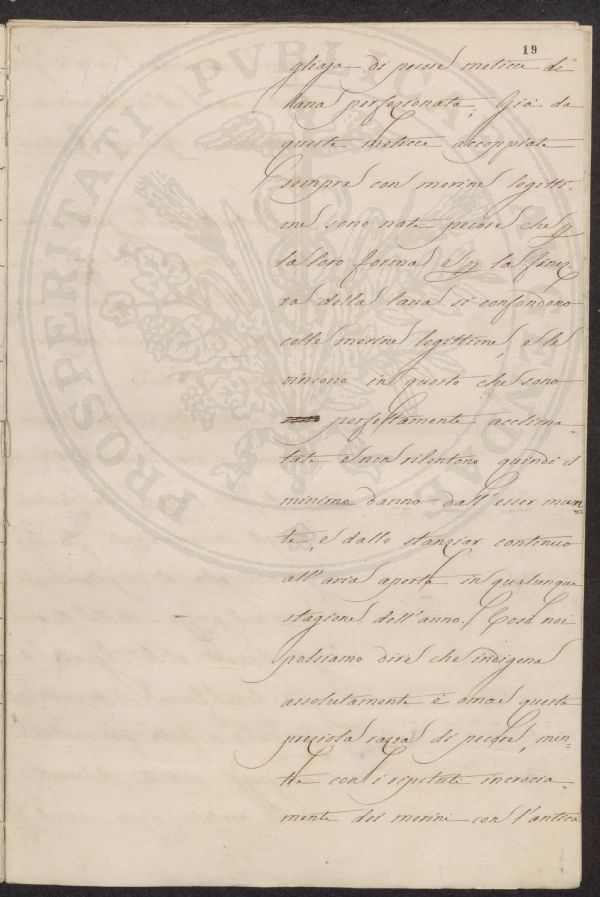 19
gliaja di pecore meticce di
lana perfezionata. Già da
queste meticce accoppiate
sempre con merine legitti-
me sono nate pecore che p
la loro forma, e p la finez
za della lana si confondono
colle merine legittime, e le
vincono in questo che sono
perfettamente acclima
tate e non risentono quindi il
minimo danno dall'esser mun-
te, e dallo stanziar continuo
all'aria aperta in qualunque
stagione dell'anno. Così noi
possiamo dire che indigena
assolutamente è omai questa
preziosa razza di pecore, men-
tre con i ripetute incrocia
mente dei merini con l'antica
PROSPERITATI PVBLICAE AVGENDAE